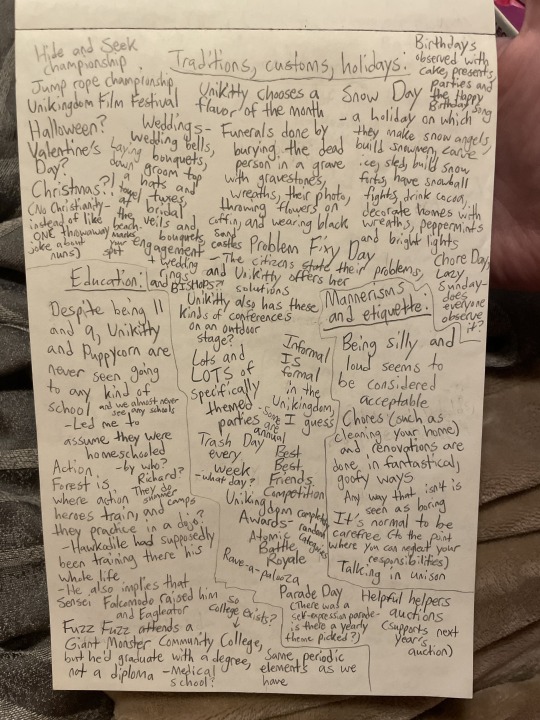 Traditions, customs, holidays:
Hide and Seek
championship
Jump rope championship
Unikingdom Film Festival
Halloween?
Valentine's
Day?
Christmas?!
(No Christianity-
instead of like
ONE throwaway
joke about
nuns)
Laying
down
a
towel
at
the
beach-
marks
your
spot
Weddings-
wedding bells,
bouquets,
groom top
hats and
tuxes,
bridal
veils and
bouquets,
engagement
+ wedding
rings
and
BISHOPS?
Unikitty chooses a
flavor of the month
Funerals done by
burying the dead
person in a grave
with gravestones,
wreaths, their photo,
throwing flowers on
coffin, and wearing black
sand
castles
Problem Fixy Day
-The citizens state their problems,
and Unikitty offers her
solutions
Unikitty also has these
kinds of conferences
on an outdoor
stage?
Lots and
LOTS of
specifically
themed
parties
-some are
annual
Trash Day
every
week
-what day?
Informal
IS
formal
in the
Unikingdom,
I guess
Best
Best
Friends
Competition
Unikingdom
Awards-
completely
random
categories
Atomic
Battle
Royale
Rave-a-palooza
Parade Day
(There was a
self-expression parade-
is there a yearly
theme picked?)
same periodic
elements as we
have
Snow Day
- a holiday on which
they make snow angels,
build snowmen, carve
ice, sled, build snow
forts, have snowball
fights, drink cocoa,
decorate homes with
wreaths, peppermints
and bright lights
Birthdays
observed with
cake, presents,
parties and
the Happy
Birthday song
Chore Day,
Lazy
Sunday-
does
everyone
observe
it?
Education:
Despite being 11
and 9, Unikitty
and Puppycorn are
never seen going
to any kind of
school
and we almost never
see any schools
-Led me to
assume they were
homeschooled
-by who?
Richard?
Action
Forest is
where action
heroes train, and
they practice in a dojo
They do
summer
camps
?
-Hawkodile had supposedly
been training there his
whole life
-He also implies that
Sensei Falcomodo raised him
and Eagleator
so
college exists?
Fuzz Fuzz attends a
Giant Monster Community College,
but he'd graduate with a degree,
not a diploma -Medical
school?
Mannerisms
and etiquette:
Being silly and
loud seems to
be considered
acceptable
Chores (such as
cleaning your home)
and renovations are
done in fantastically
goofy ways
Any way that isn't is
seen as boring
It's normal to be
carefree (to the point
where you can neglect your
responsibilities)
Talking in unison
Helpful helpers
auctions
(supports next
year's
auction)